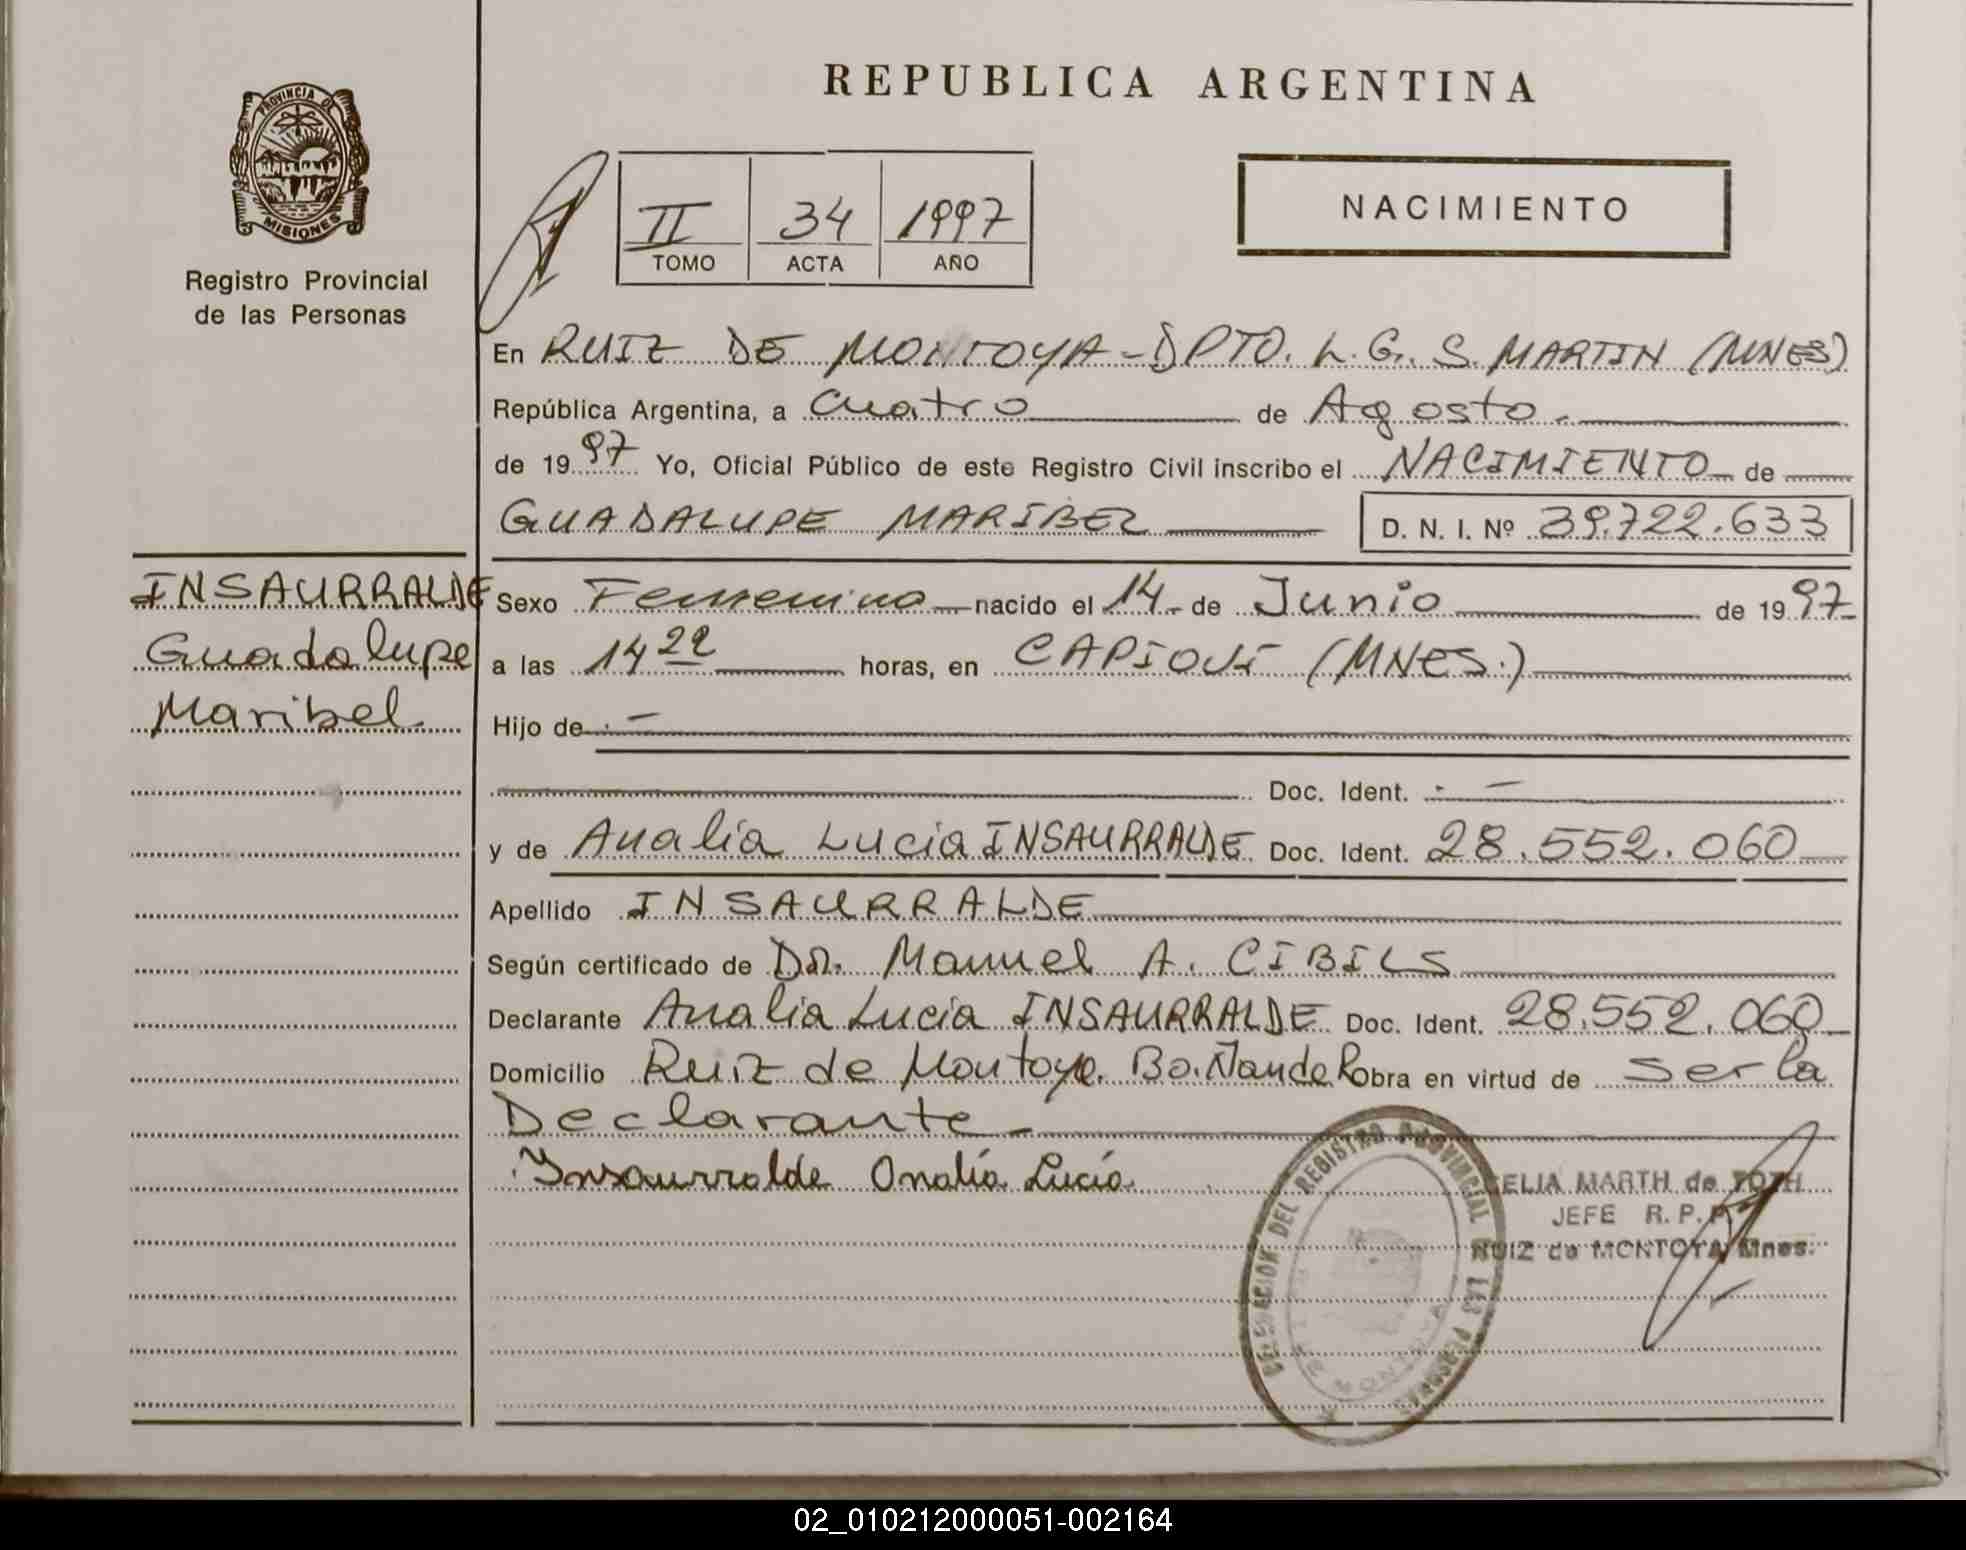 REPUBLICA ARGENTINA
PROVINCIA DE
MISIONES
Registro Provincial
de las Personas
II 34 1997
TOMO ACTA AÑO
NACIMIENTO
En RUIZ DE MONTOYA - DPTO. L. G. S. MARTIN (MNES)
República Argentina, a Cuatro de Agosto.
de 1997 Yo, Oficial Público de este Registro Civil inscribo el NACIMIENTO de
GUADALUPE MARIBEL D. N. I. Nº 39.722.633
INSAURRALDE
Guadalupe
Maribel.
Sexo Femenino nacido el 14 de Junio de 1997
a las 14 22 horas, en CAPIOVÍ (MNES.)
Hijo de . -
Doc. Ident. . -
y de Analía Lucía INSAURRALDE Doc. Ident. 28.552.060
Apellido INSAURRALDE
Según certificado de Dr. Manuel A. CIBILS
Declarante Analía Lucía INSAURRALDE Doc. Ident. 28.552.060
Domicilio Ruiz de Montoya. Bo. Ñande R Obra en virtud de ser la
Declarante
Insaurralde Analía Lucía
DELEGACION DEL REGISTRO PROVINCIAL DE LAS PERSONAS
MONTOYA
CELIA MARTH de TOTH
JEFE R. P. P.
RUIZ de MONTOYA Mnes.
02_010212000051-002164